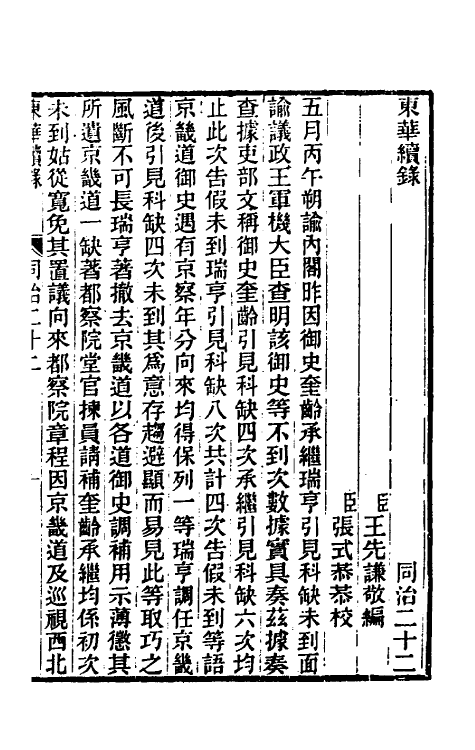 東華續錄 同治二十二
臣王先謙敬編
臣張式恭恭校
五月丙午朔諭內閣昨因御史奎齡承繼瑞亨引見科缺未到面
諭議政王軍機大臣查明該御史等不到次數據實具奏茲據奏
查據吏部文稱御史奎齡引見科缺四次承繼引見科缺六次均
止此次告假未到瑞亨引見科缺八次共計四次告假未到等語
京畿道御史遇有京察年分向來均得保列一等瑞亨調任京畿
道後引見科缺四次未到其爲意存趨避顯而易見此等取巧之
風斷不可長瑞亨著撤去京畿道以各道御史調補用示薄懲其
所遺京畿道一缺著都察院堂官揀員請補奎齡承繼均係初次
未到姑從寬免其置議向來都察院章程因京畿道及巡視西北
東華續錄 同治二十二 一